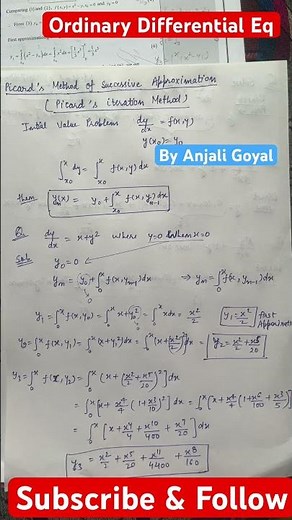 Comparing (1) and (2), f(x, y) = x + y², x₀ = 0 and y₀ = 0
Ordinary Differential Eq
First approximation
Picard's Method of Successive Approximation
(Picard's iteration Method)
Initial Value Problems dy/dx = f(x,y)
y(x₀) = y₀
By Anjali Goyal
∫_{x₀}^{x} dy = ∫_{x₀}^{x} f(x,y) dx
then yₙ(x) = y₀ + ∫_{x₀}^{x} f(x,y_{n-1}) dx
Q. dy/dx = x+y² where y=0 when x=0
Sol. y₀ = 0
yₙ = y₀ + ∫₀ˣ f(x,y_{n-1}) dx ⇒ yₙ = ∫₀ˣ f(x, y_{n-1}) dx
y₁ = ∫₀ˣ f(x,y₀) = ∫₀ˣ x+y₀² = ∫₀ˣ x dx = x²/2 y₁ = x²/2 first Approximation
y₂ = ∫₀ˣ f(x,y₁) = ∫₀ˣ (x+y₁²) dx = ∫₀ˣ (x+(x²/2)²) dx = y₂ = x²/2 + x⁵/20
y₃ = ∫₀ˣ f(x,y₂) = ∫₀ˣ (x + [x²/2 + x⁵/20]²) dx
= ∫₀ˣ [x + x⁴/4 (1+x³/10)²] dx = ∫₀ˣ (x + x⁴/4 (1 + x⁶/100 + x³/5)) dx
= ∫₀ˣ [x + x⁴/4 + x¹⁰/400 + x⁷/20] dx
y₃ = x²/2 + x⁵/20 + x¹¹/4400 + x⁸/160
Subscribe & Follow